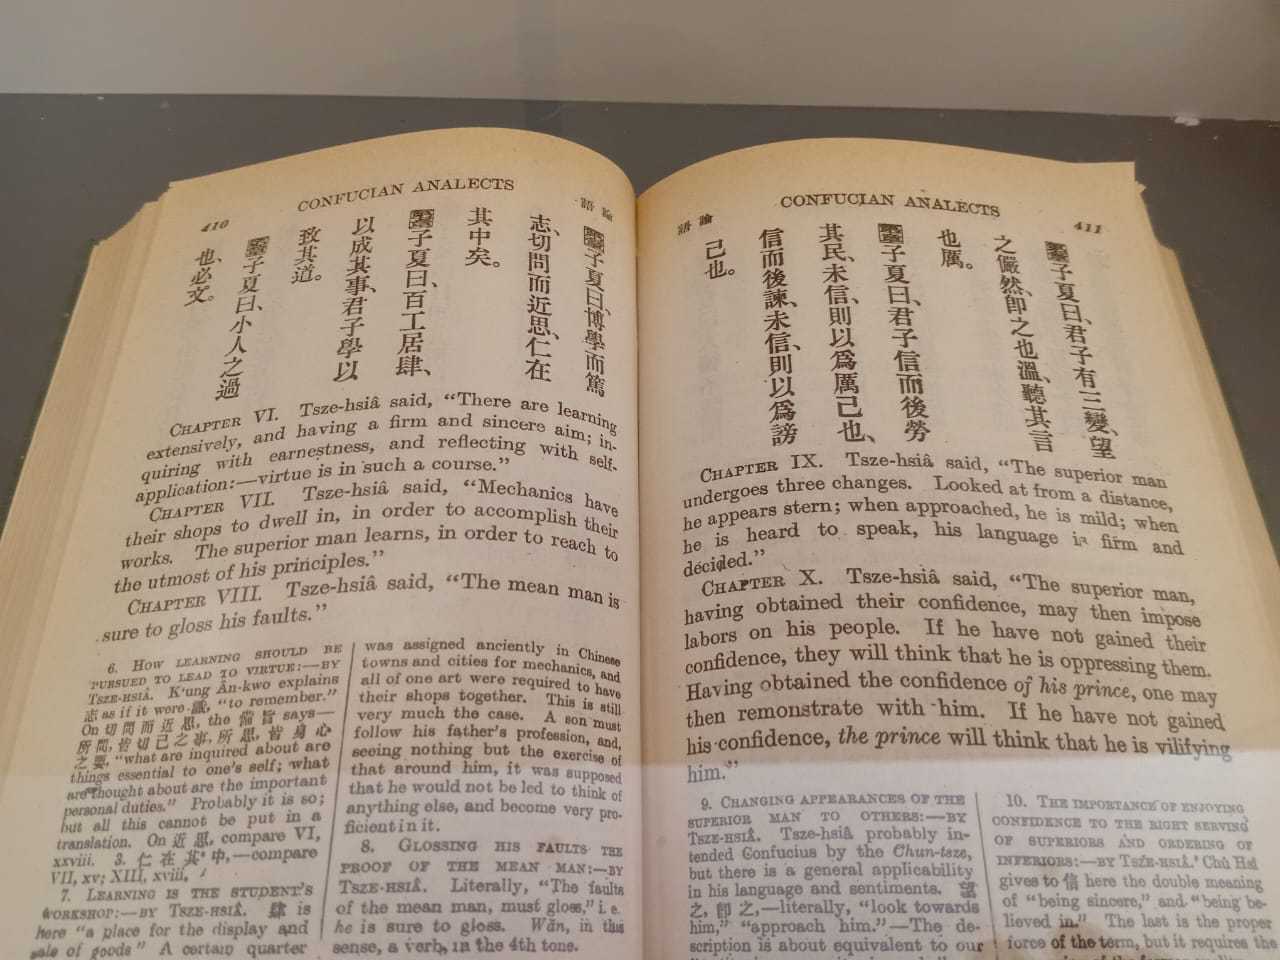 410
CONFUCIAN ANALECTS
論語
子夏曰、博學而篤
志、切問而近思、仁在
其中矣。
子夏曰、百工居肆、
以成其事、君子學以
致其道。
子夏曰、小人之過
也、必文。
CHAPTER VI. Tsze-hsiâ said, “There are learning
extensively, and having a firm and sincere aim; in-
quiring with earnestness, and reflecting with self-
application:—virtue is in such a course.”
CHAPTER VII. Tsze-hsiâ said, “Mechanics have
their shops to dwell in, in order to accomplish their
works. The superior man learns, in order to reach to
the utmost of his principles.”
CHAPTER VIII. Tsze-hsiâ said, “The mean man is
sure to gloss his faults.”
6. HOW LEARNING SHOULD BE
PURSUED TO LEAD TO VIRTUE:—BY
TSZE-HSIÂ. K‘ung Ân-kwo explains
志 as if it were 識, “to remember.”
On 切問而近思, the 備旨 says—
所問, 皆切己之事, 所思, 皆身心
之要, “what are inquired about are
things essential to one’s self; what
are thought about are the important
personal duties.” Probably it is so;
but all this cannot be put in a
translation. On 近思, compare VI,
xxviii. 3. 仁在其中,—compare
VII, xv; XIII, xviii.
7. LEARNING IS THE STUDENT’S
WORKSHOP:—BY TSZE-HSIÂ. 肆 is
here “a place for the display and
sale of goods” A certain quarter
was assigned anciently in Chinese
towns and cities for mechanics, and
all of one art were required to have
their shops together. This is still
very much the case. A son must
follow his father’s profession, and,
seeing nothing but the exercise of
that around him, it was supposed
that he would not be led to think of
anything else, and become very pro-
ficient in it.
8. GLOSSING HIS FAULTS THE
PROOF OF THE MEAN MAN:—BY
TSZE-HSIÂ. Literally, “The faults
of the mean man, must gloss,” i. e.
he is sure to gloss. Wăn, in this
sense, a verb, in the 4th tone.
論語
CONFUCIAN ANALECTS
411
子夏曰、君子有三變、望
之儼然、卽之也溫、聽其言
也厲。
子夏曰、君子信而後勞
其民、未信、則以爲厲己也、
信而後諫、未信、則以爲謗
己也。
CHAPTER IX. Tsze-hsiâ said, “The superior man
undergoes three changes. Looked at from a distance,
he appears stern; when approached, he is mild; when
he is heard to speak, his language is firm and
decided.”
CHAPTER X. Tsze-hsiâ said, “The superior man,
having obtained their confidence, may then impose
labors on his people. If he have not gained their
confidence, they will think that he is oppressing them.
Having obtained the confidence of his prince, one may
then remonstrate with him. If he have not gained
his confidence, the prince will think that he is vilifying
him.”
9. CHANGING APPEARANCES OF THE
SUPERIOR MAN TO OTHERS:—BY
TSZE-HSIÂ. Tsze-hsiâ probably in-
tended Confucius by the Chun-tsze,
but there is a general applicability
in his language and sentiments. 望
之, 卽之,—literally, “look towards
him,” “approach him.”—The de-
scription is about equivalent to our
10. THE IMPORTANCE OF ENJOYING
CONFIDENCE TO THE RIGHT SERVING
OF SUPERIORS AND ORDERING OF
INFERIORS:—BY TSZE-HSIÂ. Chû Hsî
gives to 信 here the double meaning
of “being sincere,” and “being be-
lieved in.” The last is the proper
force of the term, but it requires the